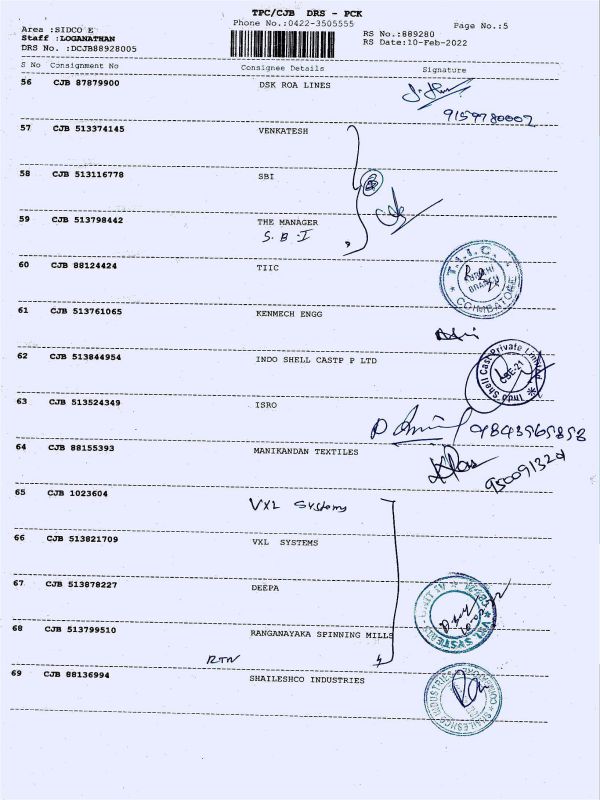 TPC/CJB DRS - PCK
Phone No.:0422-3505555
Page No.:5
Area :SIDCO E
Staff :LOGANATHAN
DRS No. :DCJB88928005
RS No.:889280
RS Date:10-Feb-2022
S No Consignment No Consignee Details Signature
56 CJB 87879900 DSK ROA LINES
9159780007
57 CJB 513374145 VENKATESH
58 CJB 513116778 SBI
59 CJB 513798442 THE MANAGER
S.B.I
60 CJB 88124424 TIIC
T.I.I.C. KURICHI BRANCH COIMBATORE
61 CJB 513761065 KENMECH ENGG
62 CJB 513844954 INDO SHELL CASTP P LTD
Indo Shell Cast Private Limited CBE-21
63 CJB 513524349 ISRO
9843565858
64 CJB 88155393 MANIKANDAN TEXTILES
65 CJB 1023604 VXL Systems
66 CJB 513821709 VXL SYSTEMS
67 CJB 513878227 DEEPA
VXL SYSTEMS
68 CJB 513799510 RANGANAYAKA SPINNING MILLS
RTN
69 CJB 88136994 SHAILESHCO INDUSTRIES
SHAILESHCO INDUSTRIES COIMBATORE